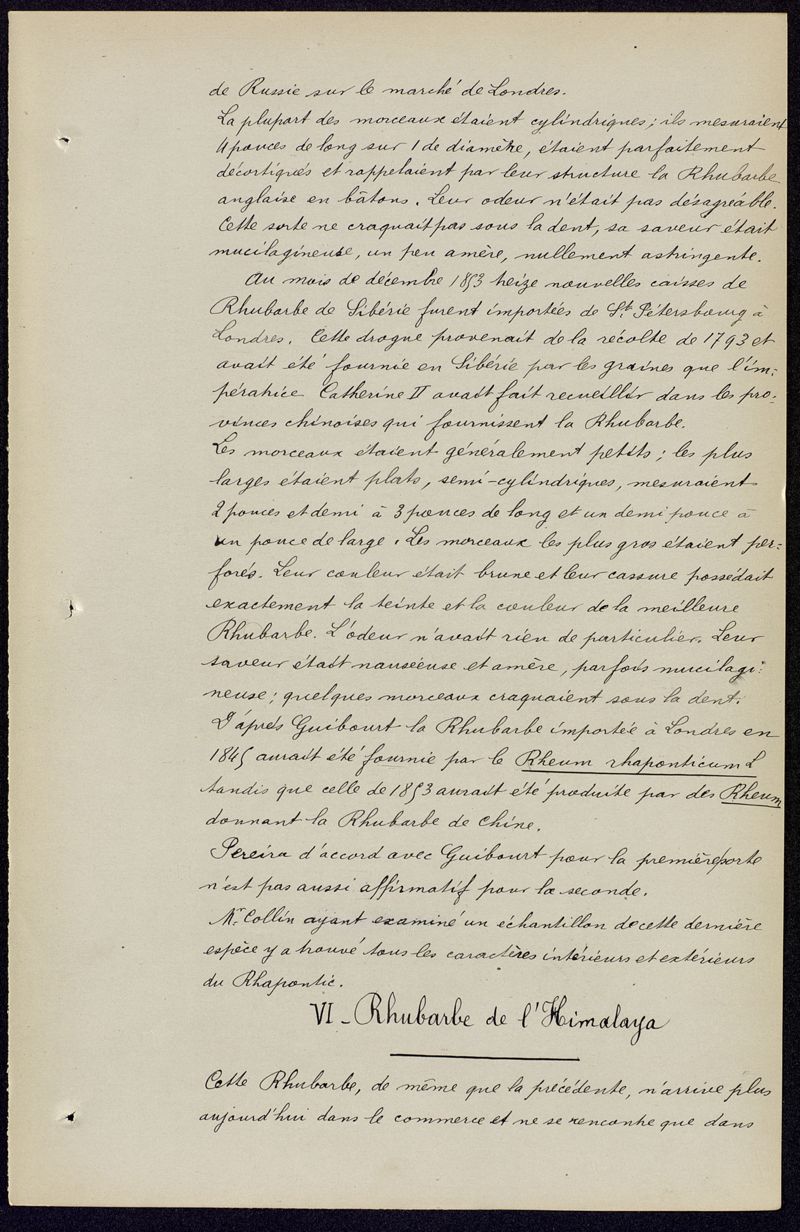 de Russie sur le marché de Londres.
La plupart des morceaux étaient cylindriques; ils mesuraient
4 pouces de long sur 1 de diamètre, étaient parfaitement
décortiqués et rappelaient par leur structure la Rhubarbe
anglaise en bâtons. Leur odeur n'était pas désagréable.
Cette sorte ne craquait pas sous la dent, sa saveur était
mucilagineuse, un peu amère, nullement astringente.
Au mois de décembre 1853 treize nouvelles caisses de
Rhubarbe de Sibérie furent importées de St. Pétersbourg à
Londres. Cette drogue provenait de la récolte de 1793 et
avait été fournie en Sibérie par les graines que l'im-
pératrice Catherine II avait fait recueillir dans les pro-
vinces chinoises qui fournissent la Rhubarbe.
Les morceaux étaient généralement petits; les plus
larges étaient plats, semi-cylindriques, mesuraient
2 pouces et demi à 3 pouces de long et un demi pouce à
un pouce de large. Les morceaux les plus gros étaient per=
forés. Leur couleur était brune et leur cassure possédait
exactement la teinte et la couleur de la meilleure
Rhubarbe. L'odeur n'avait rien de particulier. Leur
saveur était nauséeuse et amère, parfois mucilagi-
neuse; quelques morceaux craquaient sous la dent.
D'après Guibourt la Rhubarbe importée à Londres en
1845 aurait été fournie par le Rheum rhaponticum L
tandis que celle de 1853 aurait été produite par des Rheum
donnant la Rhubarbe de Chine.
Pereira d'accord avec Guibourt pour la première sorte
n'est pas aussi affirmatif pour la seconde.
Mr. Collin ayant examiné un échantillon de cette dernière
espèce y a trouvé tous les caractères intérieurs et extérieurs
du Rhapontic.
VI - Rhubarbe de l'Himalaya
Cette Rhubarbe, de même que la précédente, n'arrive plus
aujourd'hui dans le commerce et ne se rencontre que dans